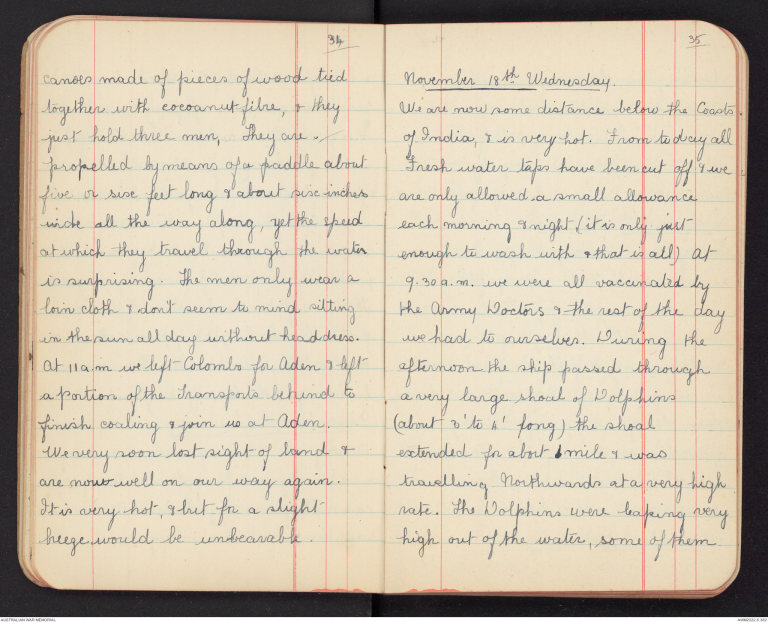 34
canoes made of pieces of wood tied
together with cocoanut fibre, & they
just hold three men, They are
propelled by means of a paddle about
five or six feet long & about six inches
wide all the way along, yet the speed
at which they travel through the water
is surprising. The men only wear a
loin cloth & don't seem to mind sitting
in the sun all day without headdress.
At 11 a.m we left Colombo for Aden & left
a portion of the Transports behind to
finish coaling & join us at Aden.
We very soon lost sight of land &
are now well on our way again.
It is very hot, & but for a slight
breeze would be unbearable.
35
November 18th Wednesday.
We are now some distance below the Coasts
of India, & is very hot. From today all
Fresh water taps have been cut off & we
are only allowed a small allowance
each morning & night (it is only just
enough to wash with & that is all) At
9.30 a.m. we were all vaccinated by
the Army Doctors & the rest of the day
we had to ourselves. During the
afternoon the ship passed through
a very large shoal of Dolphins
(about 3' to 4' long) the shoal
extended for about 1 mile & was
travelling Northwards at a very high
rate. The Dolphins were leaping very
high out of the water, some of them
AUSTRALIAN WAR MEMORIAL